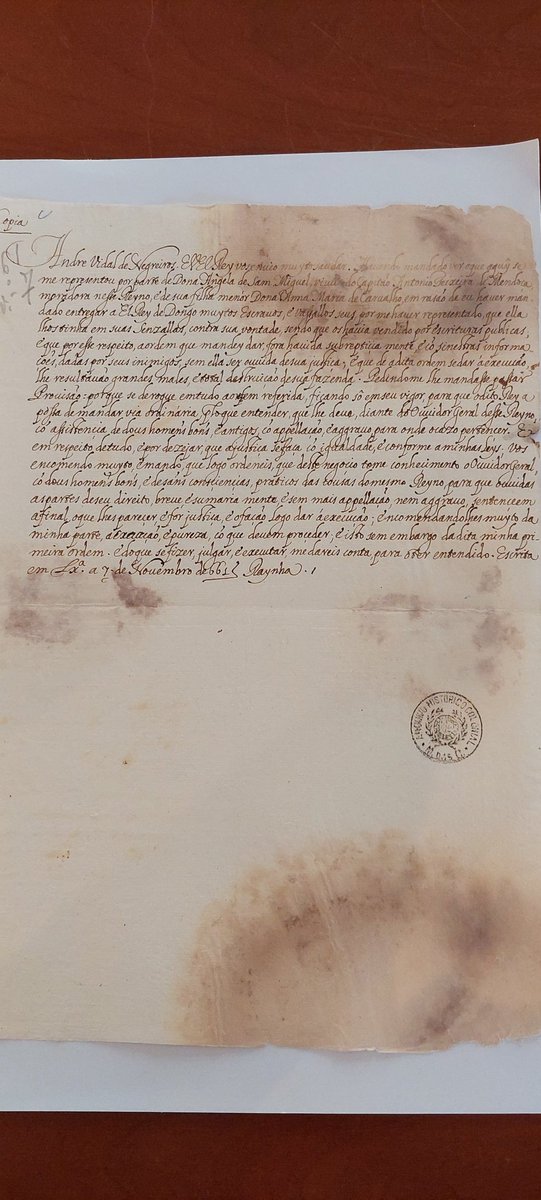 Copia
Andre Vidal de Negreiros. Eu El Rey vos envio muyto saudar. Havendo mandado ver o que aquy se
me representou por parte de Dona Angela de Sam Miguel, viuva do Capitão Antonio Teixeira de Mendoca
moradora nesse Reyno, e de sua filha menor Dona Anna Maria de Carvalho, em rasão de eu haver man-
dado entregar a El Rey de Dongo muytos Escravos, e vaçallos seus por me haver representado, que ella
lhos tinha em suas Senzallas, contra sua vontade, sendo que os havia vendido por escrituras publicas,
E que por esse respeito, a ordem que mandey dar, fora havida subrepticia mente, e cõ sinestras informa
ções, dadas por seus inimigos, sem ella ser ouvida de sua justiça; E que de a dita ordem se dar á execução,
lhe resultavão grandes males, e total destruição de sua fazenda. Pedindome lhe mandasse passar
Provisão, porque se derogue em tudo a ordem referida, ficando só em seu vigor, para que o dito Rey a
possa demandar, via ordinaria, pelo que entender, que lhe deve, diante do Ouvidor Geral desse Reyno,
cõ assistencia de dous homens bons, e antigos, cõ appellação, e aggravo para onde o cazo pertencer. E
em respeito de tudo, e por dezejar que a justiça se faça cõ igualdade, e conforme a minhas leys. Vos
encomendo muyto, e mando, que logo ordeneis, que deste negocio tome conhecimento o Ouvidor Geral,
cõ dous homens bons, e de sans consciencias, práticos das cousas do mesmo Reyno, para que ouvidas
as partes de seu direito, breve e sumaria mente, e sem mais appellação, nem aggravo, sentenceem
a final, o que lhes parecer, e for justiça, e o fação logo dar á execução; encomendandolhes muyto da
minha parte, a execução, e pureza, cõ que devem proceder, e isto sem embargo da dita minha pri
meira ordem. E do que se fizer, julgár, e executar me dareis conta, para o ter entendido. Escrita
em Lxª. a 7 de Novembro de 661 Raynha.
ARCHIVO HISTORICO COLONIAL